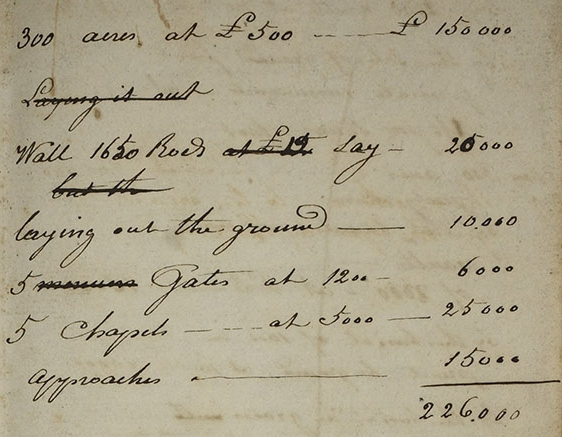 300 acres at £500 ---- £ 150000
Laying it out
Wall 1650 Rods at say - 20000
but the
laying out the ground — 10.000
5 Gates at 1200 - 6000
5 Chapels --- at 5000 — 25000
approaches — 15000
226.000